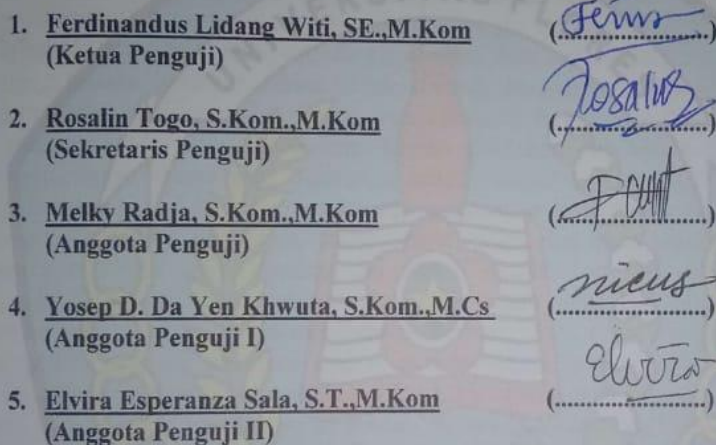 1. Ferdinandus Lidang Witi, SE.,M.Kom (....................)
(Ketua Penguji)
2. Rosalin Togo, S.Kom.,M.Kom (....................)
(Sekretaris Penguji)
3. Melky Radja, S.Kom.,M.Kom (....................)
(Anggota Penguji)
4. Yosep D. Da Yen Khwuta, S.Kom.,M.Cs (....................)
(Anggota Penguji I)
5. Elvira Esperanza Sala, S.T.,M.Kom (....................)
(Anggota Penguji II)